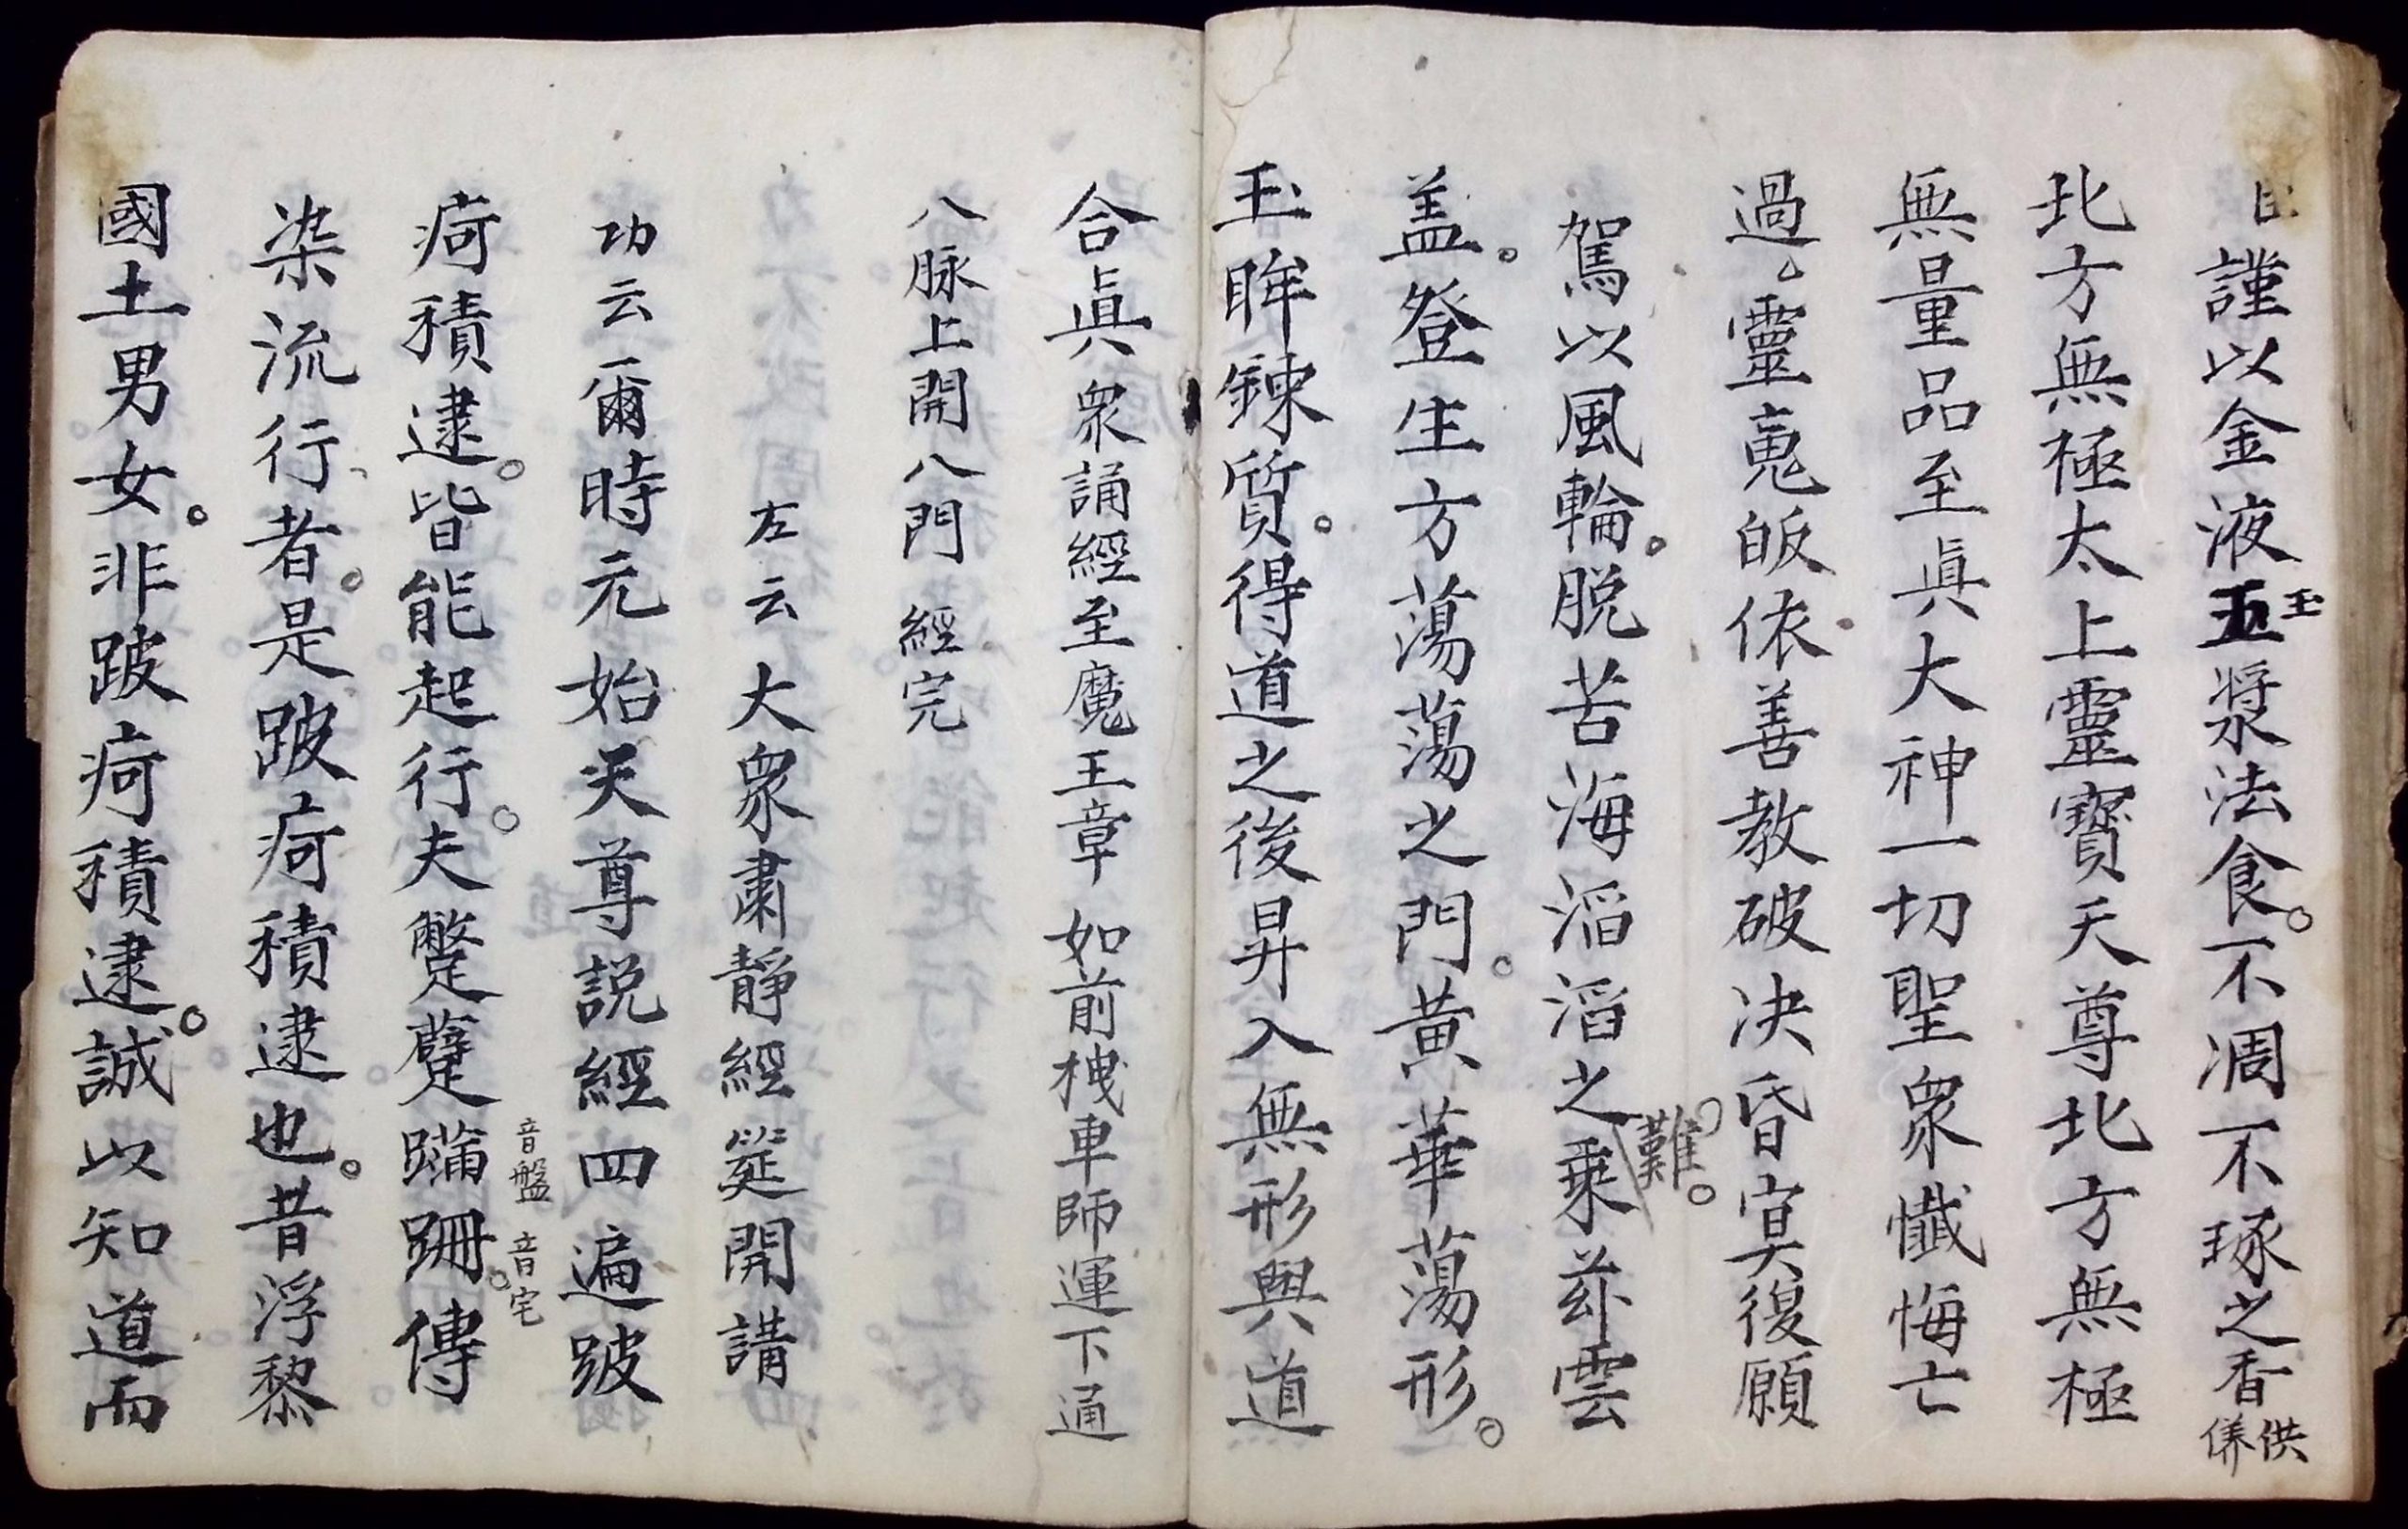 臣謹以金液玉漿法食不凋不琢之香供養
玉
北方無極太上靈寶天尊北方無極
無量品至眞大神一切聖衆懺悔亡
過靈䰟皈依善教破决昏㝠復願
駕以風輪脱苦海滔滔之難乘茲雲
盖登生方蕩蕩之門黃華蕩形
玉眸鍊質得道之後昇入無形與道
合眞 衆誦經至魔王章 如前拽車師運下通
八脉上開八門 經完
左云 大衆肅靜經筵開講
功云 爾時元始天尊説經四遍跛
疴積逮皆能起行夫蹩躠蹣跚傳
音盤 音宅
染流行者是跛疴積逮也昔浮黎
國土男女非跛疴積逮誠以知道而